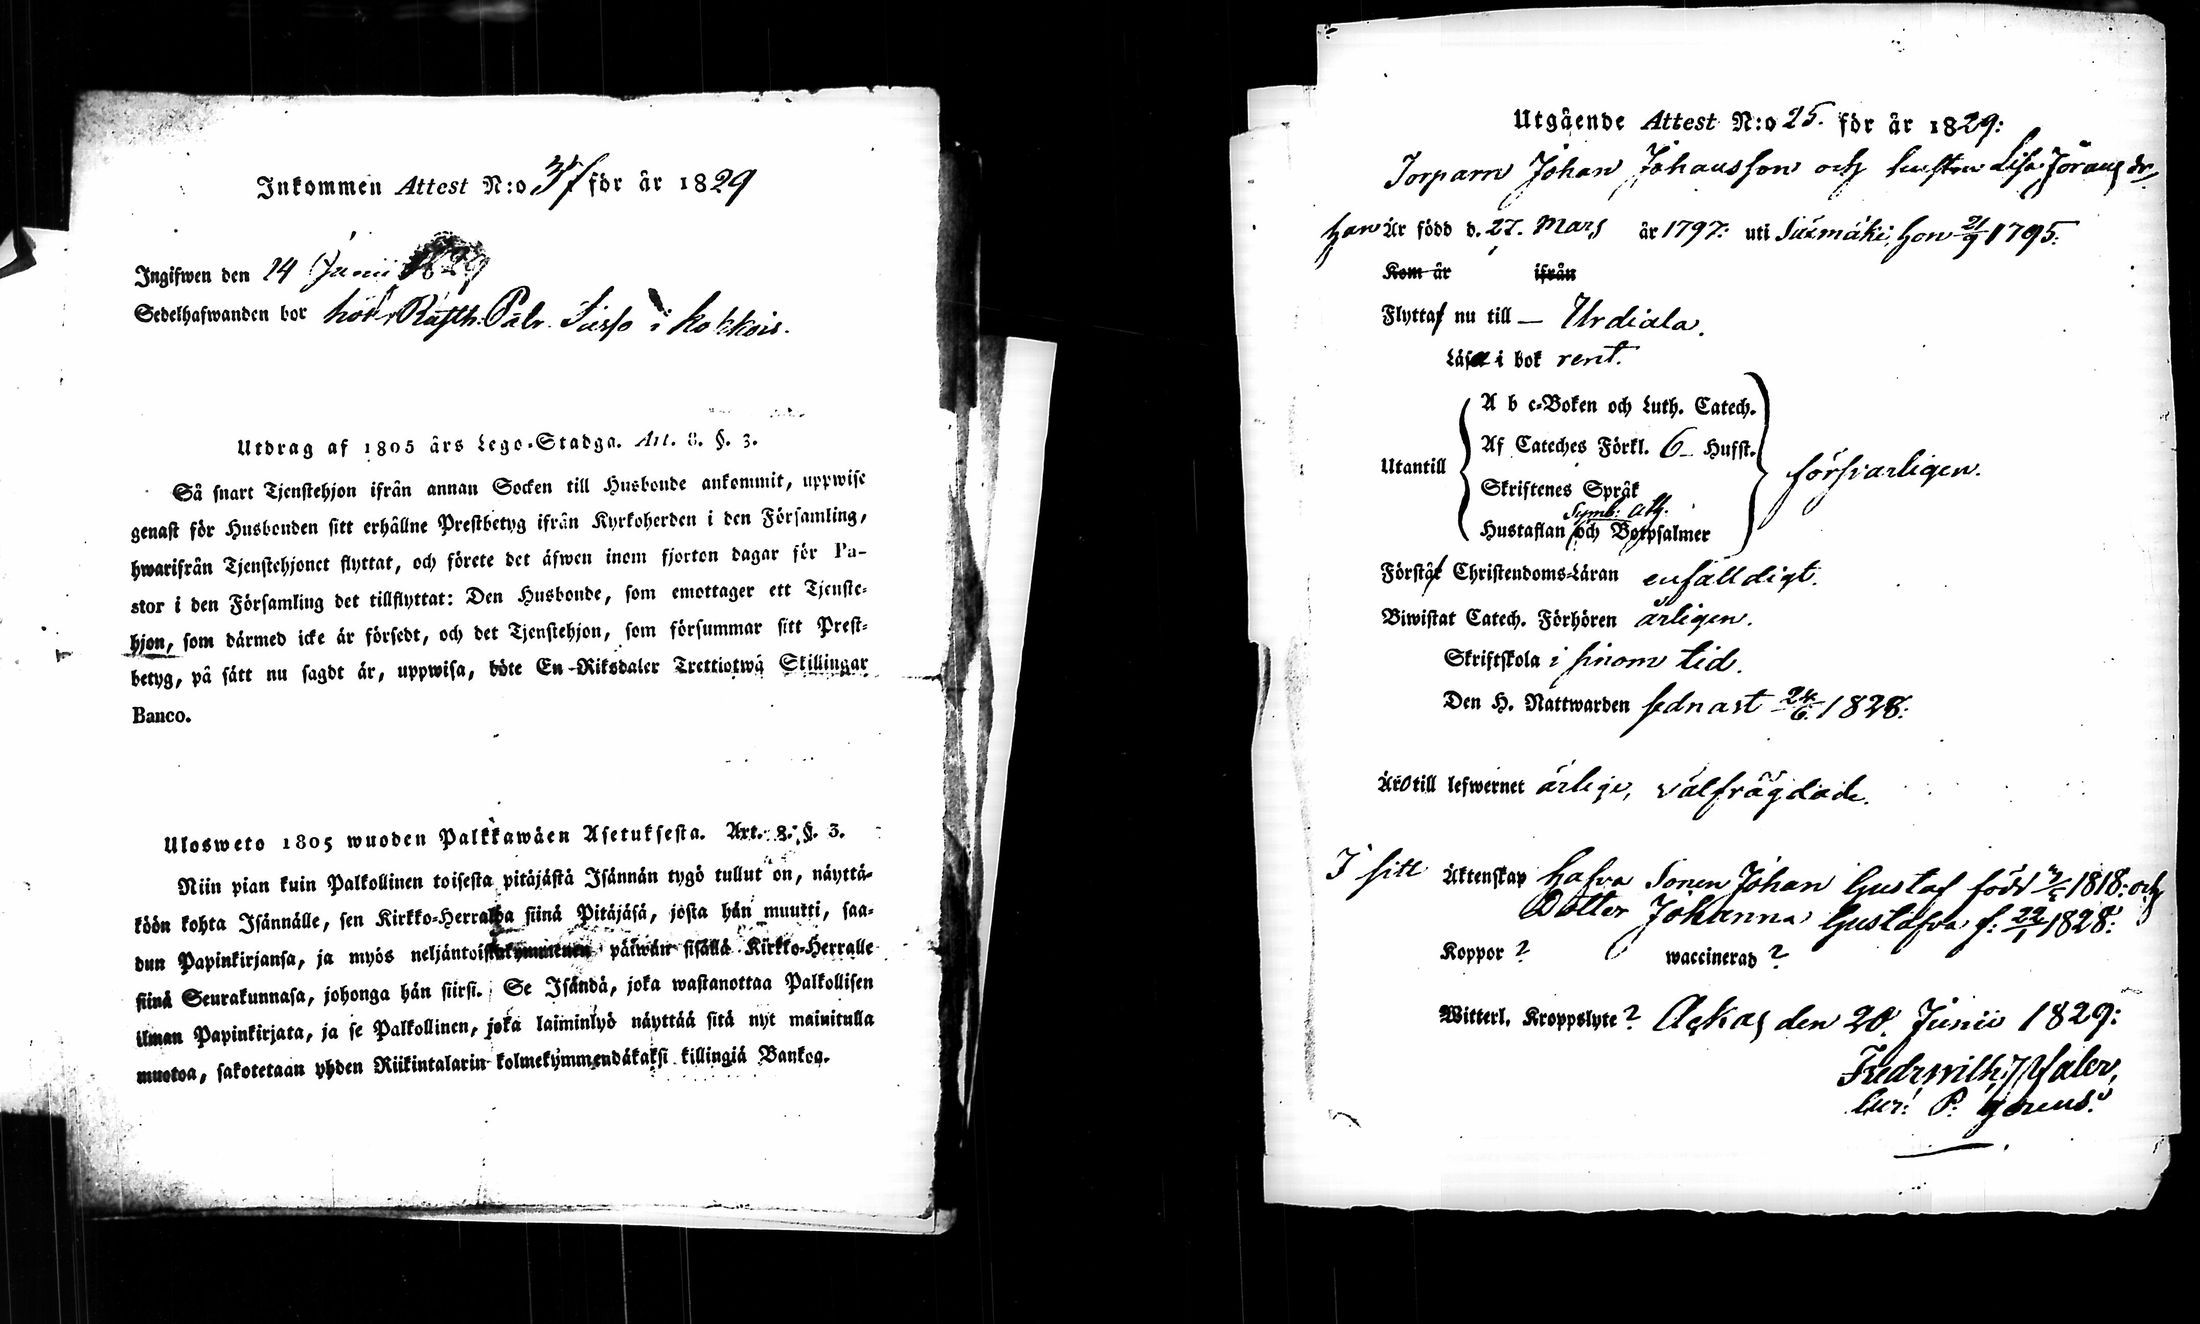 Inkommen Attest N:o för år 1829
Ingifwen den 24 Junii 1829
Sedelhafwanden bor hos i Kokkois.
Utdrag af 1805 års Lego-Stadga. Art. 8. §. 3.
Så snart Tjenstehjon ifrån annan Socken till Husbonde ankommit, uppwise
genast för Husbonden sitt erhållne Prestbetyg ifrån Kyrkoherden i den Församling,
hwarifrån Tjenstehjonet flyttat, och förete det äfwen inom fjorton dagar för Pa-
stor i den Församling det tillflyttat: Den Husbonde, som emottager ett Tjenste-
hjon, som därmed icke är försedt, och det Tjenstehjon, som försummar sitt Prest-
betyg, på sätt nu sagdt är, uppwisa, böte En Riksdaler Trettiotwå Skillingar
Banco.
Ulosweto 1805 wuoden Palkkawäen Asetuksesta. Art. 8. §. 3.
Niin pian kuin Palkollinen toisesta pitäjästä Isännän tygö tullut on, näyttä-
köön kohta Isännälle, sen Kirkko-Herralda siinä Pitäjäsä, josta hän muutti, saa-
dun Papinkirjansa, ja myös neljäntoistakymmenen päiwän sisällä Kirkko-Herralle
siinä Seurakunnasa, johonga hän siirsi. Se Isändä, joka wastanottaa Palkollisen
ilman Papinkirjata, ja se Palkollinen, joka laiminlyö näyttää sitä nyt mainitulla
muotoa, sakotetaan yhden Riikintalarin kolmekymmendäkaksi killingiä Bankoa.
Utgående Attest N:o 25. för år 1829:
Torparn Johan Johansson och hustru Lisa Jöransdr,
han Är född d. 27. Mars år 1797: uti Sääxmäki, hon 21/9 1795:
Kom år ifrån
Flytta nu till — Urdiala.
Läsa i bok rent.
A b c-Boken och Luth. Catech.
Af Cateches Förkl. 6 Hufst.
Utantill försvarligen.
Skriftenes Språk
Symb: Ath.
Hustaflan och Botpsalmer
Förstå Christendoms-Läran enfalldigt.
Biwistat Catech. Förhören årligen.
Skriftskola i sinom tid.
Den H. Nattwarden sednast 24/6 1828:
Äro till lefwernet ärlige, välfrägdade.
I sitt Äktenskap hafva Sonen Johan Gustaf född 1818: och
Dotter Johanna Gustafva f: 22/1 1828:
Koppor ? waccinerad ?
Witterl. Kroppslyte ? Ackas den 20. Junii 1829: